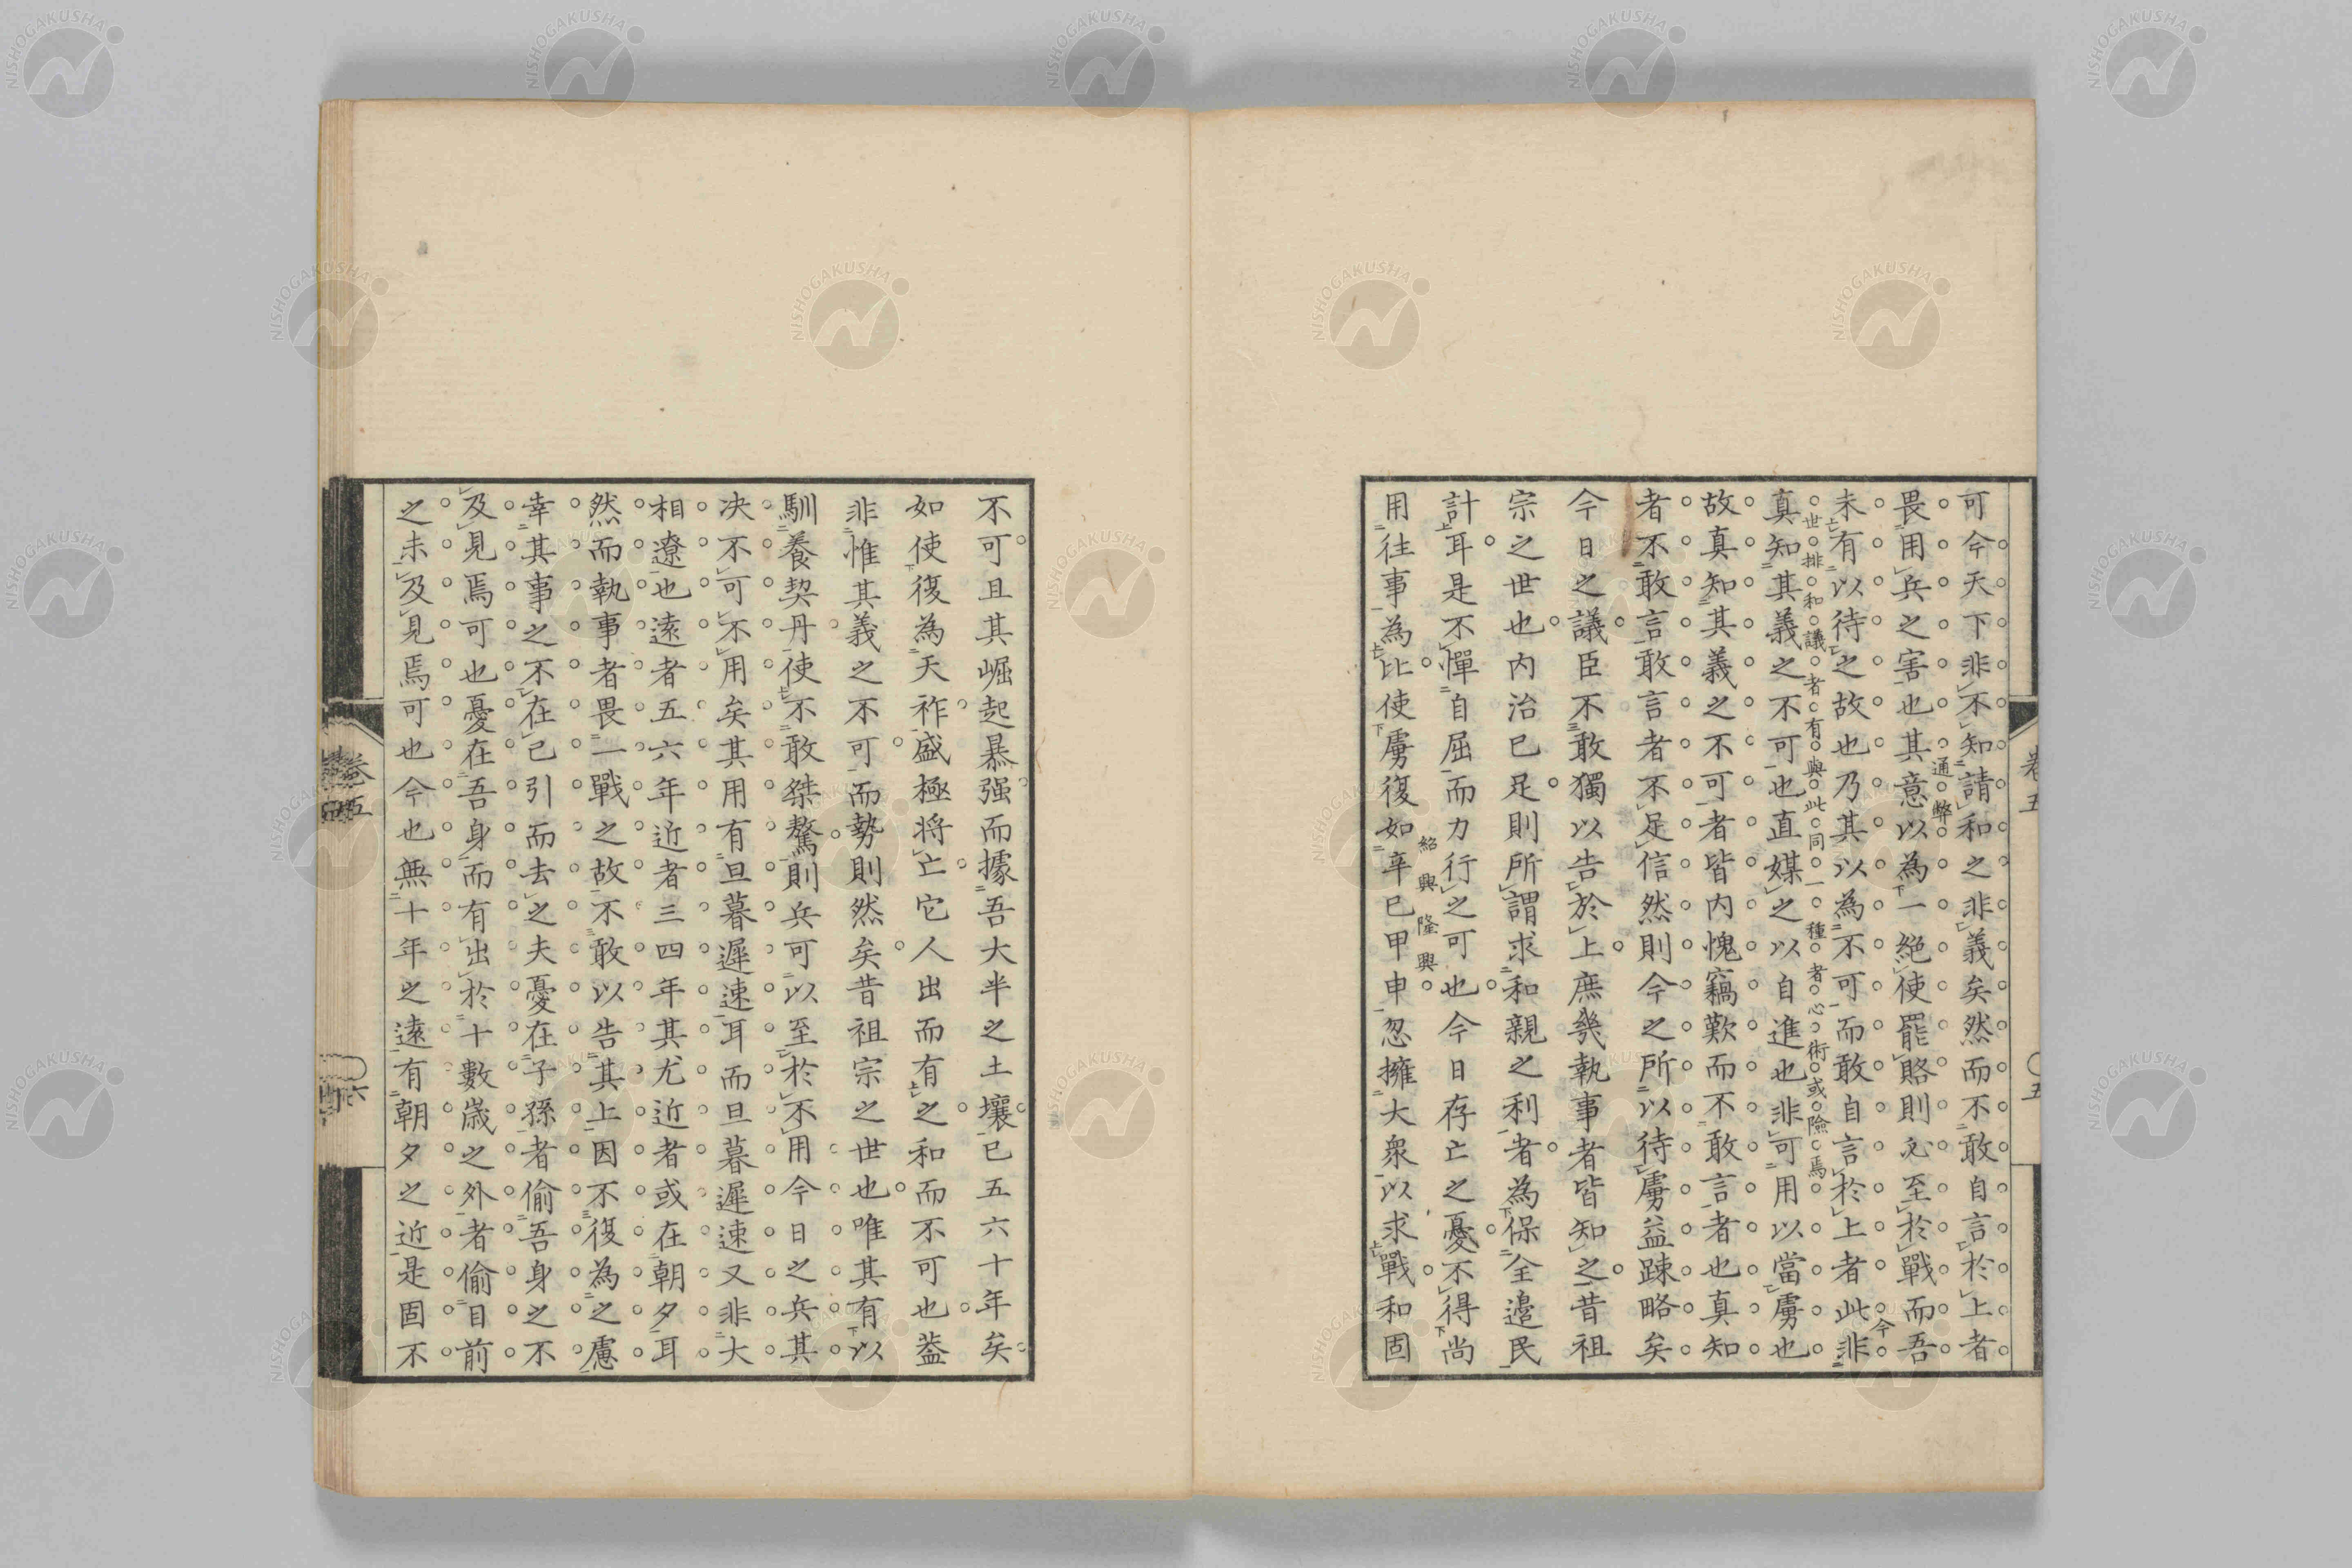 可今天下非不知請和之非義矣然而不敢自言於上者
畏用兵之害也其意以為一絕使罷賂則必至於戰而吾
通弊
未有以待之故也乃其以為不可而敢自言於上者此非
今
世排和議者有與此同一種者心術或險焉
真知其義之不可也直媒之以自進也非可用以當虜也
故真知其義之不可者皆内愧竊歎而不敢言者也真知
者不敢言敢言者不足信然則今之所以待虜益踈略矣
今日之議臣不敢獨以告於上庶幾執事者皆知之昔祖
宗之世也内治已足則所謂求和親之利者為保全邉民
計耳是不憚自屈而力行之可也今日存亡之憂不得尚
用往事為比使虜復如辛巳甲申忽擁大衆以求戰和固
紹興隆興
卷五
〇五
不可且其崛起暴强而據吾大半之土壤已五六十年矣
如使復為天祚盛極将亡它人出而有之和而不可也葢
非惟其義之不可而勢則然矣昔祖宗之世也唯其有以
馴養契丹使不敢桀驁則兵可以至於不用今日之兵其
决不可不用矣其用有旦暮遲速耳而旦暮遲速又非大
相遼也遠者五六年近者三四年其尤近者或在朝夕耳
然而執事者畏一戰之故不敢以告其上因不復為之慮
幸其事之不在已引而去之夫憂在子孫者偷吾身之不
及見焉可也憂在吾身而有出於十數歲之外者偷目前
之未及見焉可也今也無十年之遠有朝夕之近是固不
卷五
〇六
NISHOGAKUSHA